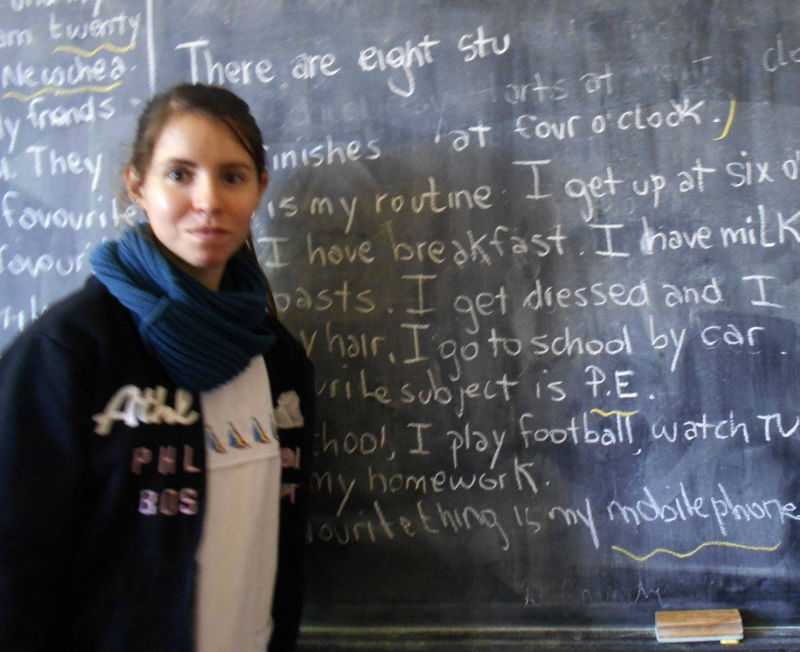 am twenty
Newschea.
my friends
They
favourite
There are eight stu
arts at
inishes at four o'clock.)
is my routine. I get up at six o'
I have breakfast. I have milk
oasts. I get dressed and I
y hair. I go to school by car.
urite subject is P.E.
chool, I play football, watch TV
my homework.
avourite thing is my mobile phone
Athl
PHL
BOS